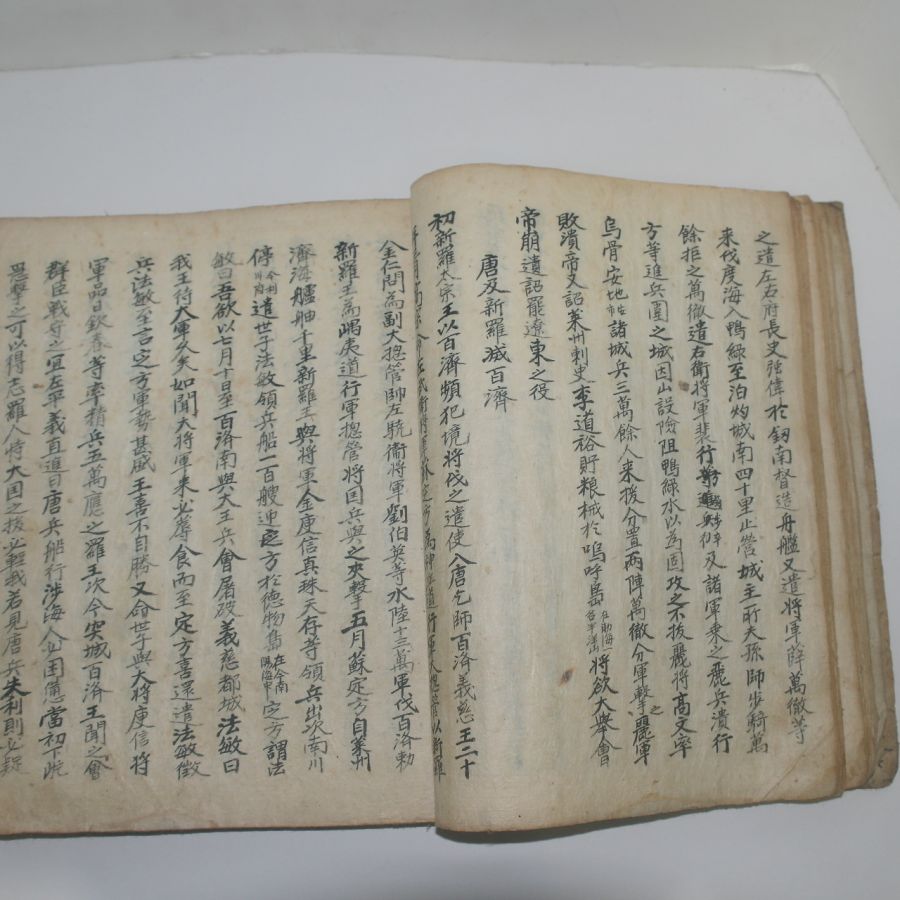 之遣左右府長史強偉於釼南督造舟艦又遣將軍薛萬徹等
來伐度海入鴨綠至泊灼城南四十里止營城主所夫孫師步騎萬
餘拒之萬徹遣右衛將軍裴行方進兵及諸軍乘之麗兵潰行
方等進兵圍之城因山設險阻鴨綠水以爲固攻之不拔麗將高文率
烏骨安地諸城兵三萬餘人來援分置兩陣萬徹分軍擊之麗軍
敗潰帝又詔萊州刺史李道裕貯粮械於嗚呼島將欲大擧會
帝崩遺詔罷遼東之役
唐及新羅滅百濟
初新羅太宗王以百濟頻犯境將伐之遣使入唐乞師百濟義慈王二十
金仁問爲副大摠管帥左驍衛將軍劉伯英等水陸十三萬軍伐百濟勅
新羅王爲嵎夷道行軍摠管將国兵與之夾擊五月蘇定方自萊州
濟海舳艫千里新羅王與將軍金庾信真珠天存等領兵出次南川
停今利川府遣世子法敏領兵船一百艘迎定方於德物島在今南陽海中定方謂法
敏曰吾欲以七月十日至百濟南與大王兵會屠破義慈都城法敏曰
我王待大軍久矣如聞大將軍來必蓐食而至定方喜還遣法敏徵
兵法敏至言定方軍勢甚盛王喜不自勝又命世子與大將庾信將
軍品日欽春等率精兵五萬應之羅王次今突城百濟王聞之會
群臣戰守之宜左平義直進曰唐兵船行涉海人必困憊當初下陸
急擊之可以得志羅人恃大国之援必輕我若見唐兵失利則必疑